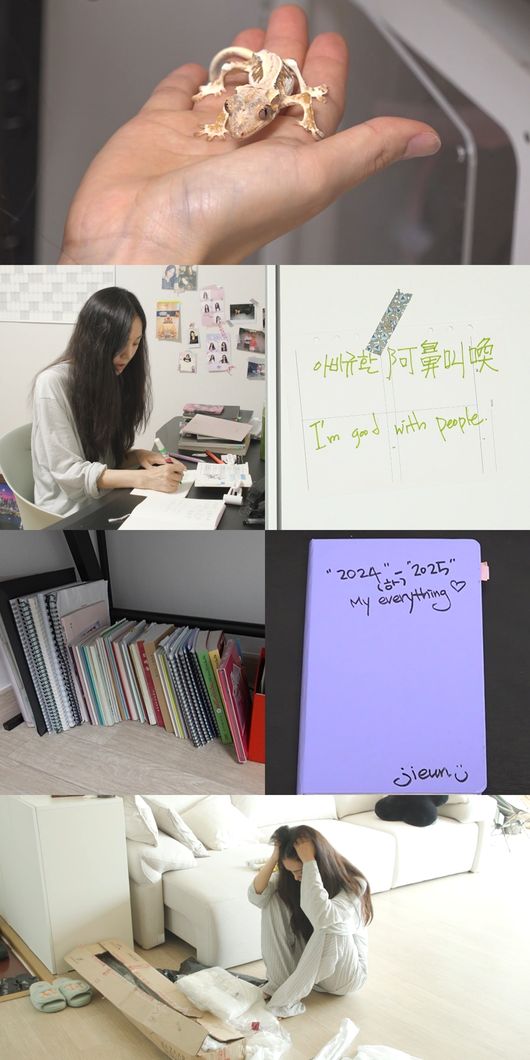 아비규환 阿鼻叫喚
I'm good with people.
"2024" - "2025"
(하)
My everything♡
jieun